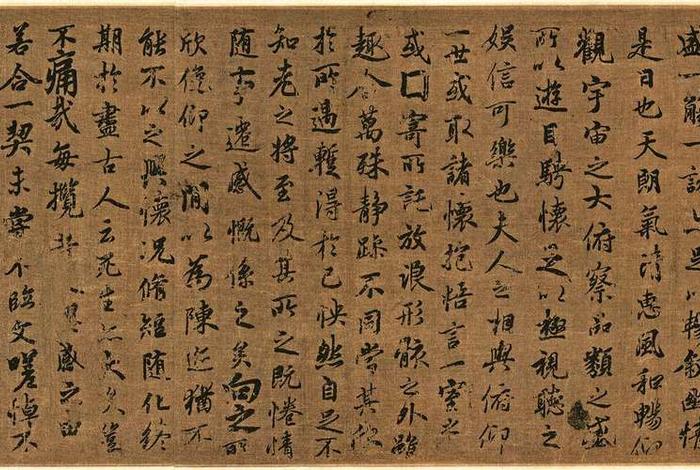 盛一觴一詠足以暢叙幽情
是日也天朗氣清惠風和暢仰
觀宇宙之大俯察品類之盛
所以遊目騁懷足以極視聽之
娛信可樂也夫人之相與俯仰
一世或取諸懷抱悟言一室之
或寄所託放浪形骸之外雖
趣舍萬殊静躁不同當其欣
於所遇暫得於己怏然自足不
知老之將至及其所之既惓情
随事遷感慨係之矣向之所
欣俛仰之間以為陳迹猶不
能不以之興懷況脩短随化終
期於盡古人云死生亦大矣豈
不痛哉每攬昔興感之由
若合一契未嘗不臨文嗟悼不